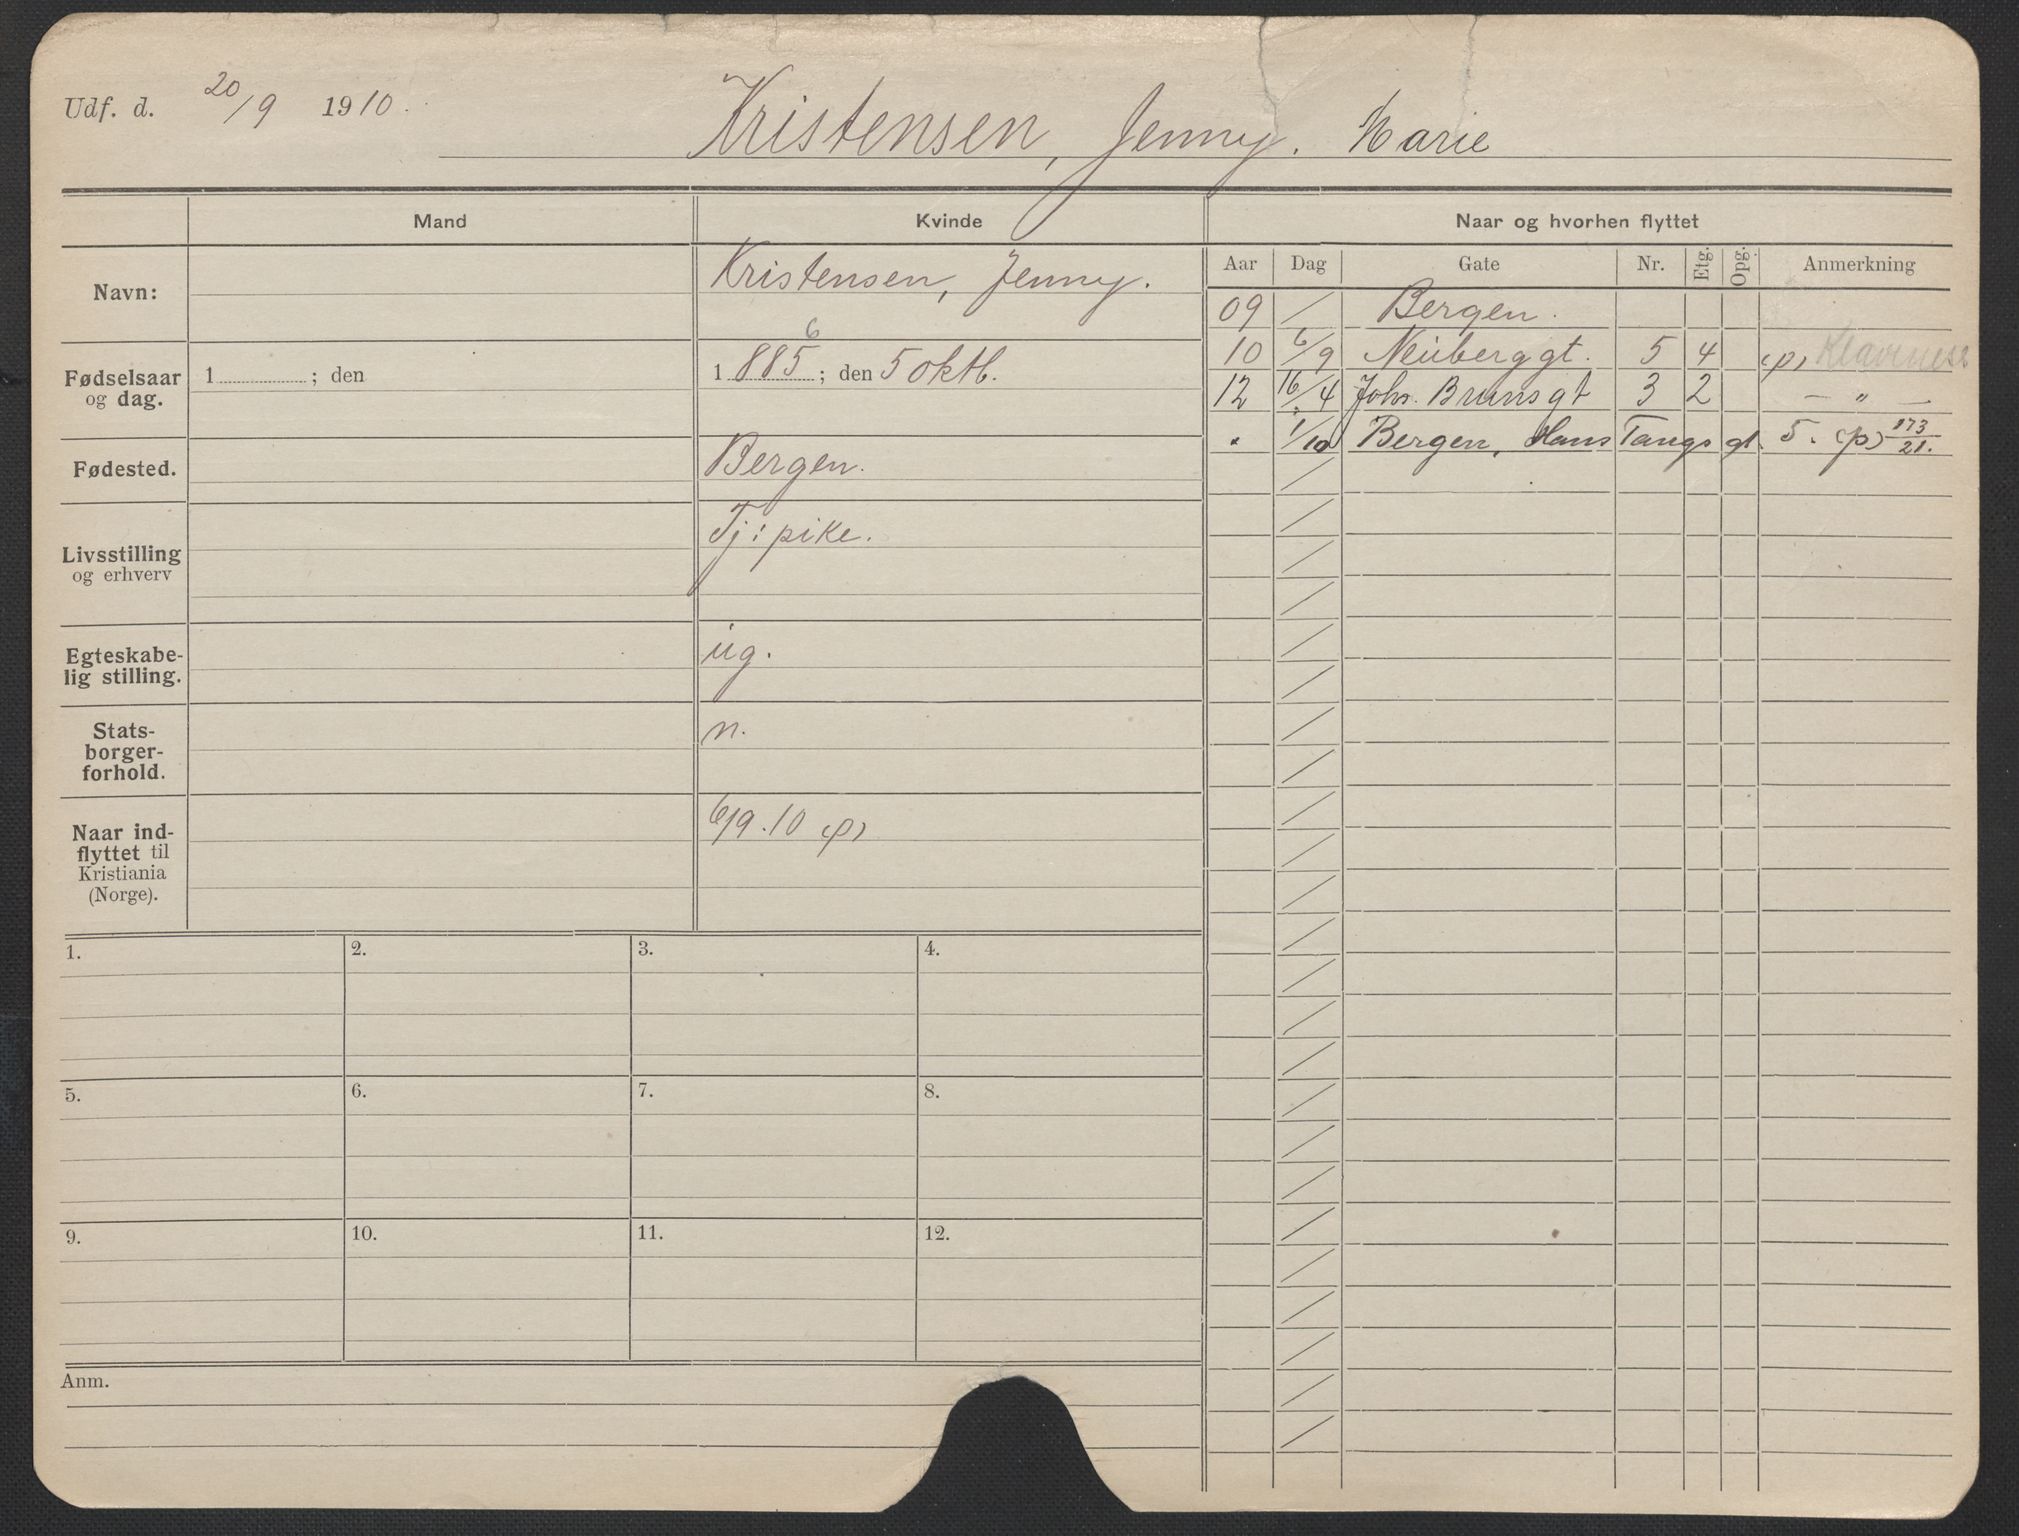 Udf. d. 20/9 1910.
Kristensen, Jenny. Marie
Mand
Kvinde
Navn:
Kristensen, Jenny.
Fødselsaar og dag.
1 ; den
6
1 885 ; den 5 oktb.
Fødested.
Bergen.
Livsstilling og erhverv
Tj: pike.
Egteskabe-
lig stilling.
ug.
Stats-
borger-
forhold.
n.
Naar ind-
flyttet til
Kristiania
(Norge).
6/9.10 (p)
1. 2. 3. 4.
5. 6. 7. 8.
9. 10. 11. 12.
Anm.
Naar og hvorhen flyttet
Aar Dag Gate Nr. Etg. Opg. Anmerkning
09 / Bergen.
10 6/9 Neuberggt. 5 4 (p) Klaveness
12 16/4 Johs. Brunsgt 3 2 — " —
" 1/10 Bergen, Hans Tangs gt. 5. (p) 173/21.